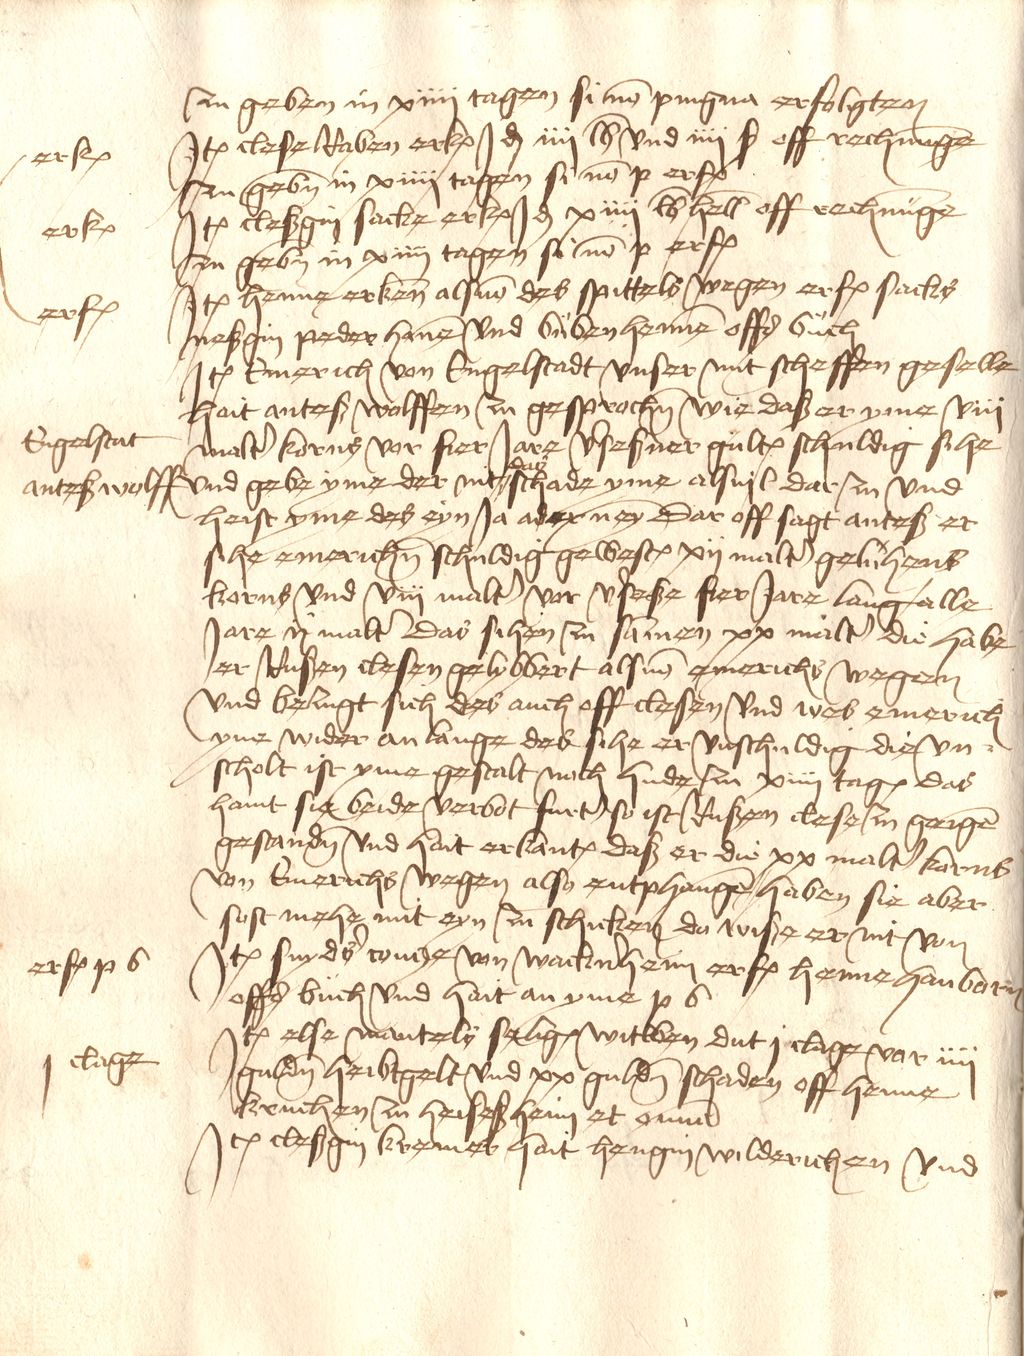 zu geben in xiiii tagen si nō pingnia erfolgtem
erkꝭ
Jtꝭ clese Raben erkꝭ J ɗ iiii lb vnd iiii ß off rechnu̅ge
zu gebn̄ in xiiii tagen si nō p erfꝭ
erkꝭ
Jtꝭ cleßgin sacke erkꝭ J ɗ xiiii lb hell̄ off rechnu̅ge
zu gebn̄ in xiiii tagen si nō p erfꝭ
erfꝭ
Jtꝭ henne erken̄ alsuō des spittels wegen erfꝭ sacks
neßgin peder han̄e vnd bubenhen̄e offs buch
Jtꝭ Emerich von Engelstadt vnser mit scheffen geselle
hait anteß wolffen zu gesprochn̄ wie daß er yme viii
Engelstat
malt' korns vor fier Jare v'seßner gultꝭ schuldig sihe
anteß wolff
vnd gebe yme der nit das schade yme alsuil dar zu vnd
heist yme des eyn Ja ader ney Dar off sagt anteß er
sihe emerichn̄ schuldig gewestꝭ xii malt' geluhens
korns vnd viii malt' vor v'seße fier Jare lang alle
Jare ii malt' Das sihen zu samen xx malt' die habe
er Rußen clesen gelybbert alsuō emerichs wegen
vnd bezugt sich des auch off clesen vnd wes emerich
yme wider anlange des sihe er vnschuldig die vn-
scholt ist yme gestalt noch hude zu xiiii tagꝭ das
haint sie beide verbot furt' so ist Rußen clese zu geigē
gestandn̄ vnd hait erkantꝭ daß er die xx malt' korns
von Emerichs wegen also entphangē haben sie aber
sost mehe mit eyn zu schicken do wiße er nit von
erfꝭ p 6
Jtꝭ snyds' contze von wackn'heim erfꝭ henne hanborn
offs buch vnd hait an yme p 6
j clage
Jtꝭ else mantels seligꝭ witwen dut j clage vor iiii
guldn̄ heubtgelt vnd xx guldn̄ schaden off henne
kruchen zu heiseßheim et om̄ia
Jtꝭ cleßgin kremer hait hengin wilderichen vnd